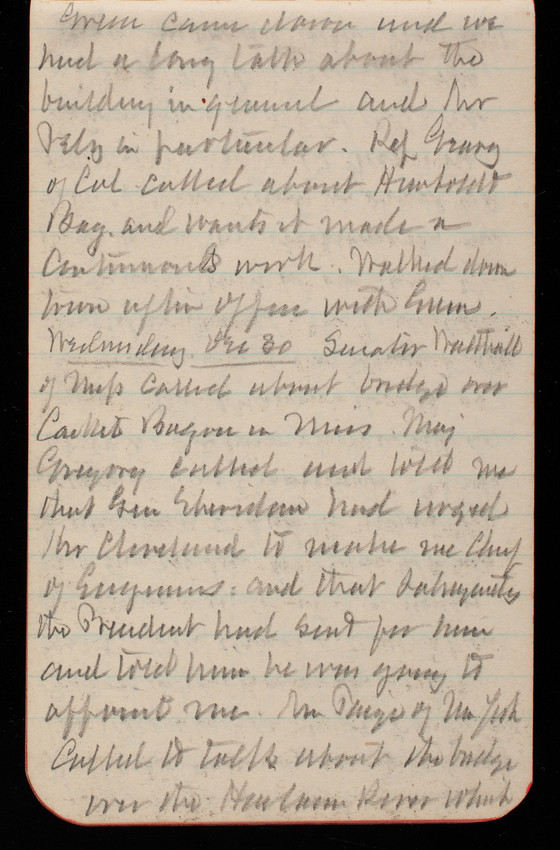 Green came down and we
had a long talk about the
building in general and Mr
Pelz in particular. Rep Geary
of Cal called about Humboldt
Bay. and wants it made a
continuous work. Walked down
town after office with Green.
Wednesday Dec 30 Senator Walthall
of Miss called about bridge over
Cacket Bayou in Miss. Maj
Gregory called and told me
that Gen Sheridan had urged
Mr Cleveland to make me Chief
of Engineers: and that
the President had sent for him
and told him he was going to
appoint me. Mr Paige of New York
called to talk about the bridge
over the Harlem River which